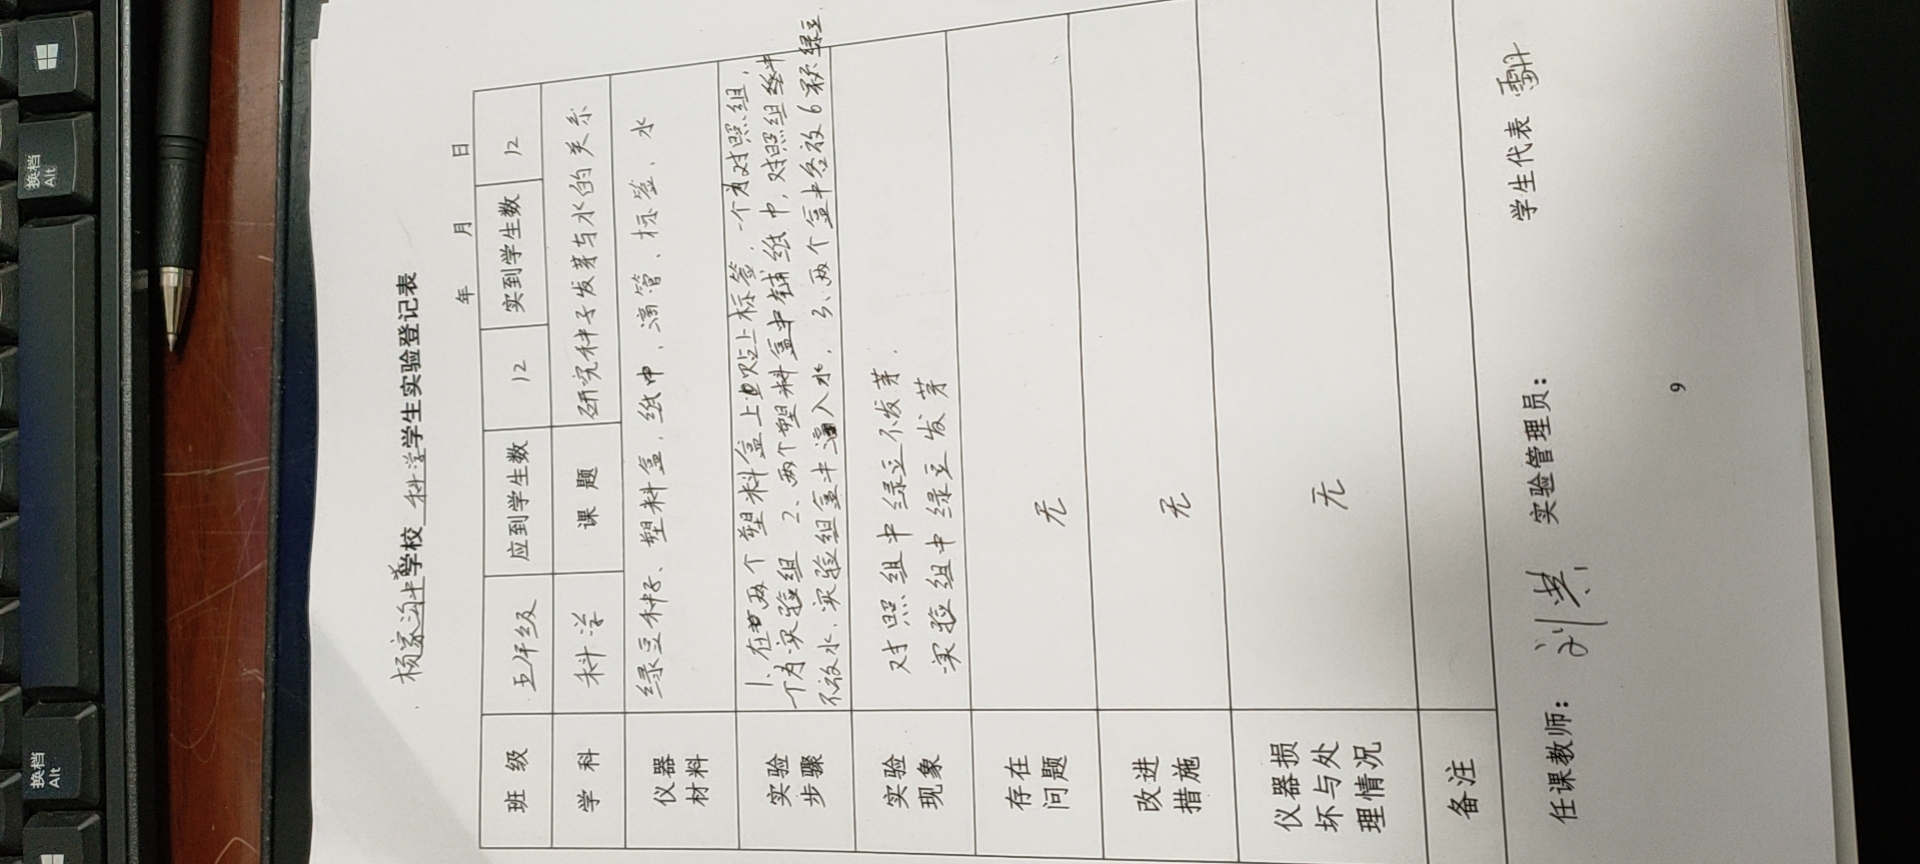 杨家沟学校 科学 学生实验登记表
年 月 日
班级 五年级 应到学生数 12 实到学生数 12
学科 科学 课题 研究种子发芽与水的关系
仪器材料 绿豆种子、塑料盒、纸巾、滴管、标签、水
实验步骤 1、在两个塑料盒上贴上标签,一个为对照组,一
个为实验组 2、两个塑料盒中铺纸巾,对照组盒中
不放水,实验组盒中滴入水,3、两个盒中各放6颗绿豆
实验现象 对照组中绿豆不发芽,
实验组中绿豆发芽
存在问题 无
改进措施 无
仪器损坏与处理情况 无
备注
任课教师: 实验管理员: 学生代表
9
换档
Alt
换档
Alt